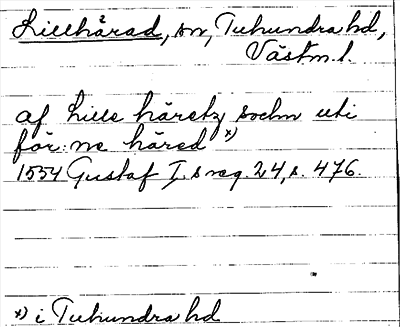 Lillhärad, sn, Tuhundra hd,
Västm.l.
af Lille häretz sochn uti
för:ne häred x)
1554 Gustaf I.s reg. 24, s. 476.
x) i Tuhundra hd